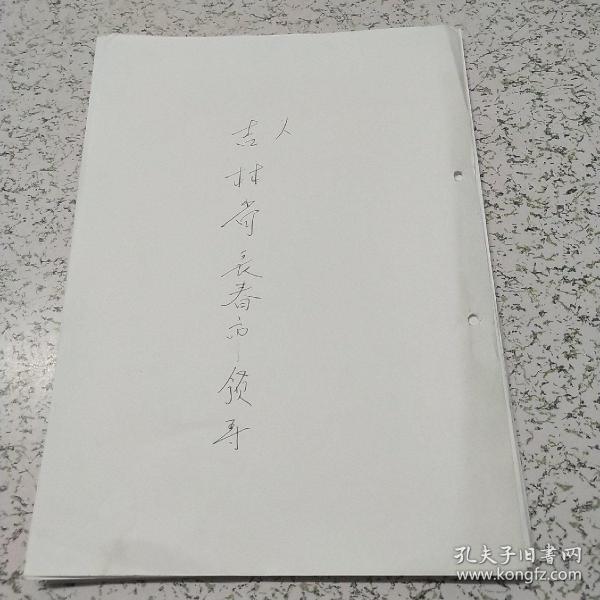 人
吉林省长春市领导
孔夫子旧书网
www.kongfz.com